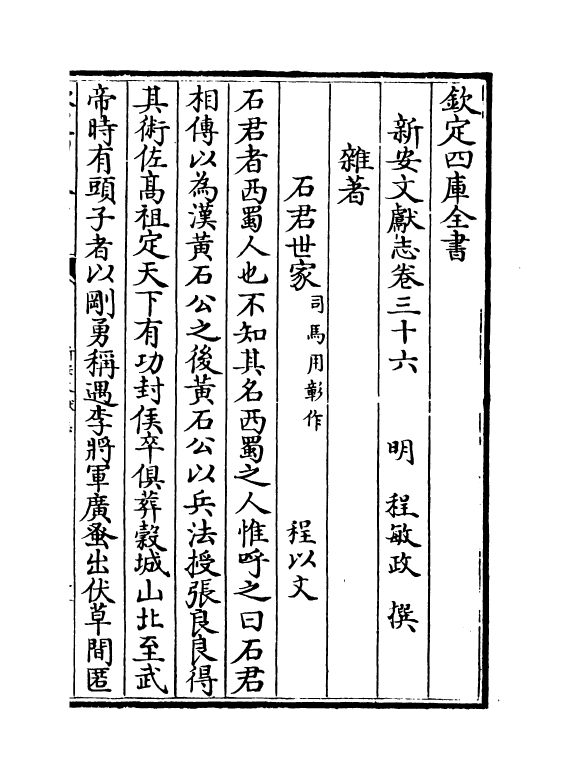 欽定四庫全書
新安文獻志卷三十六 明 程敏政 撰
雜著
石君世家 司馬用彰作 程以文
石君者西蜀人也不知其名西蜀之人惟呼之曰石君
相傳以為漢黃石公之後黃石公以兵法授張良良得
其術佐高祖定天下有功封侯卒俱葬穀城山北至武
帝時有頭子者以剛勇稱遇李將軍廣蚤出伏草間匿